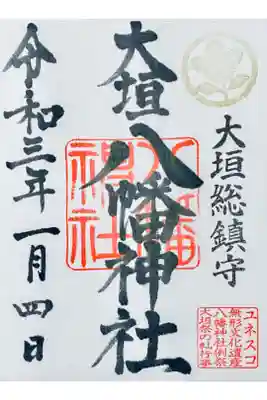 大垣総鎮守
大垣八幡神社
八幡
神社
令和三年一月四日
ユネスコ
無形文化遺産
八幡神社例祭
大垣祭の軕行事